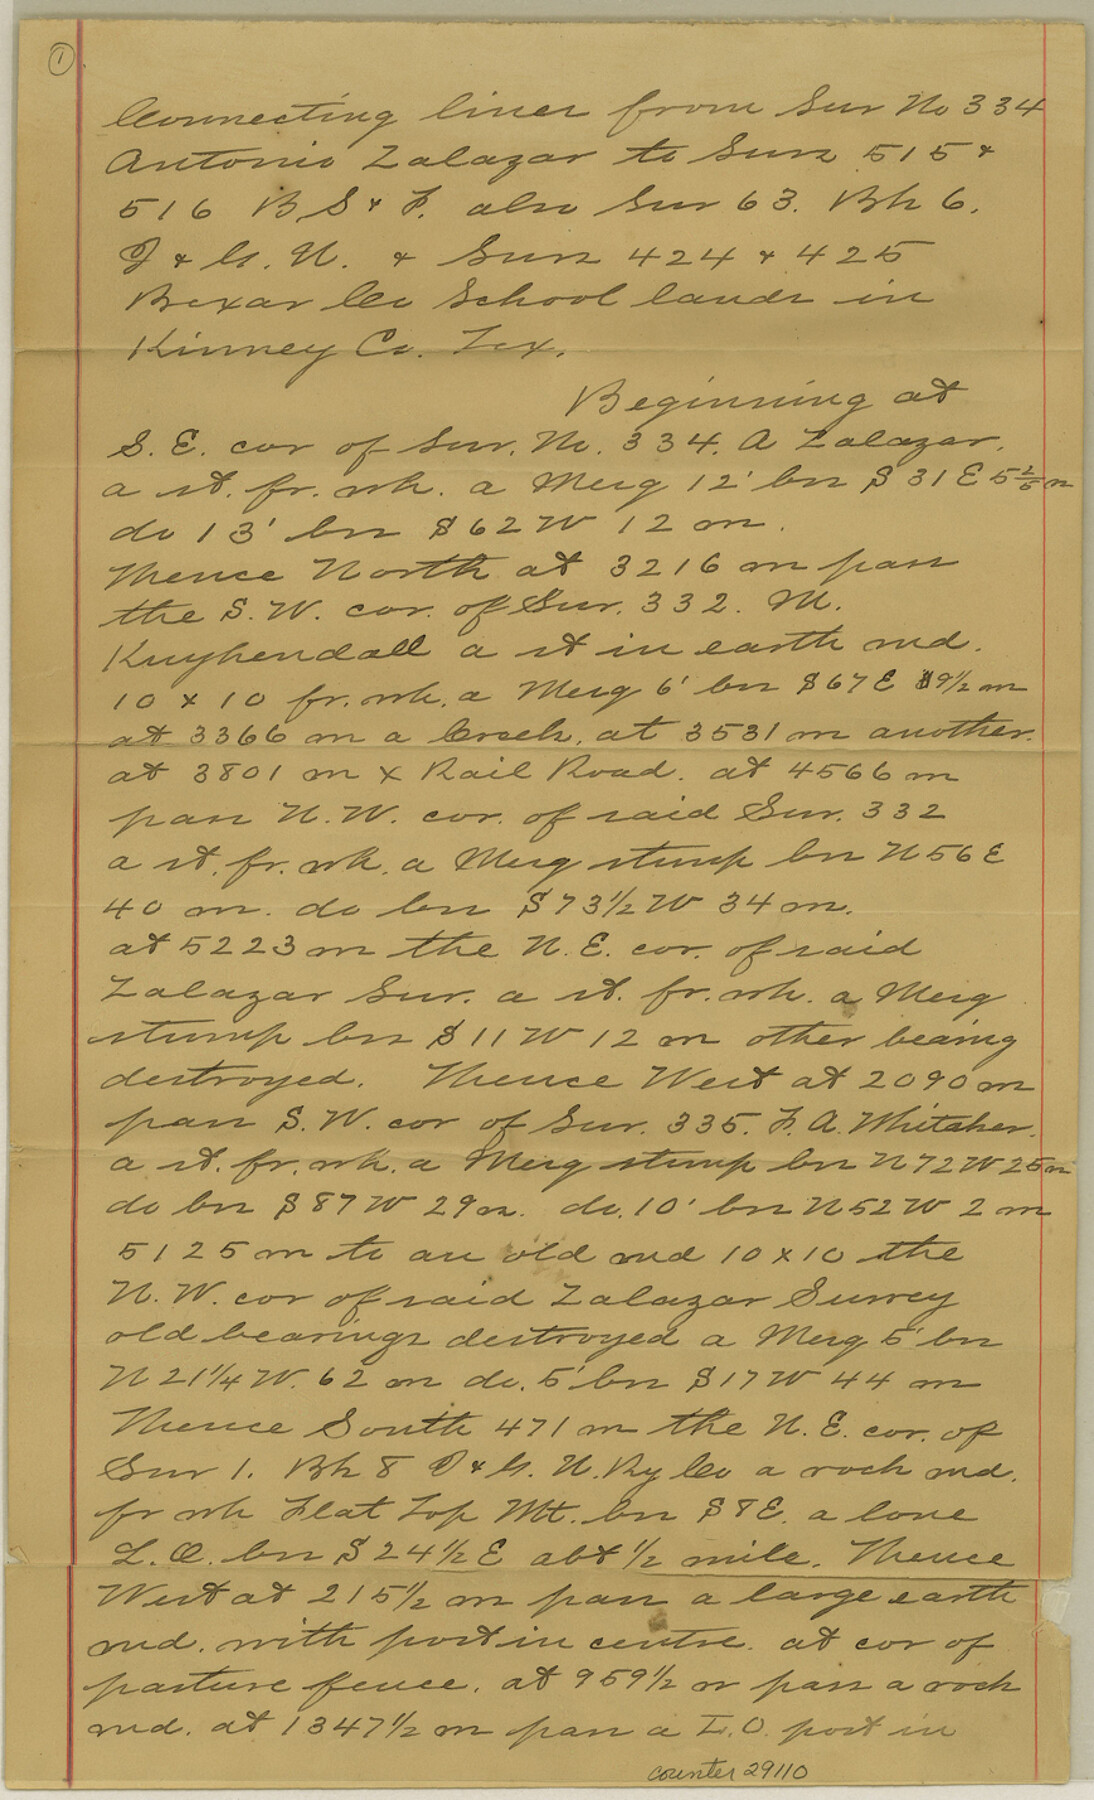 1
Connecting lines from Sur No 334
Antonio Zalazar to Surs 515 &
516 B S & F. also Sur 63. Blk 6.
I & G. N. & Surs 424 & 425
Bexar Co School lands in
Kinney Co. Tex.
Beginning at
S. E. cor of Sur. No. 334. A Zalazar.
a st. fr. wh. a Mesq 12' brs S 31 E 5 2/5 m
do 13' brs S 62 W 12 m.
Thence North at 3216 m pass
the S. W. cor. of Sur. 332. M.
Kuykendall a st in earth md.
10 x 10 fr. wh. a Mesq 6' brs S 67 E 9 1/2 m
at 3366 m a Creek. at 3531 m another.
at 3801 m x Rail Road. at 4566 m
pass N. W. cor. of said Sur. 332
a st. fr. wh. a Mesq stump brs N 56 E
40 m. do brs S 73 1/2 W 34 m.
at 5223 m the N. E. cor. of said
Zalazar Sur. a st. fr. wh. a Mesq
stump brs S 11 W 12 m other bearing
destroyed. Thence West at 2090 m
pass S. W. cor of Sur. 335. F. A. Whitaker.
a st. fr. wh. a Mesq stump brs N 72 W 25 m
do brs S 87 W 29 m. do. 10' brs N 52 W 2 m
5125 m to an old md 10 x 10 the
N. W. cor of said Zalazar Survey
old bearings destroyed a Mesq 5' brs
N 21 1/4 W. 62 m do. 5' brs S 17 W 44 m
Thence South 471 m the N. E. cor. of
Sur 1. Blk 8 I & G. N. Ry Co a rock md.
fr wh Flat Top Mt. brs S 8 E. a lone
L. O. brs S 24 1/2 E abt 1/2 mile. Thence
West at 215 1/2 m pass a large earth
md. with post in centre. at cor of
pasture fence. at 959 1/2 m pass a rock
md. at 1347 1/2 m pass a L. O. post in
counter 29110